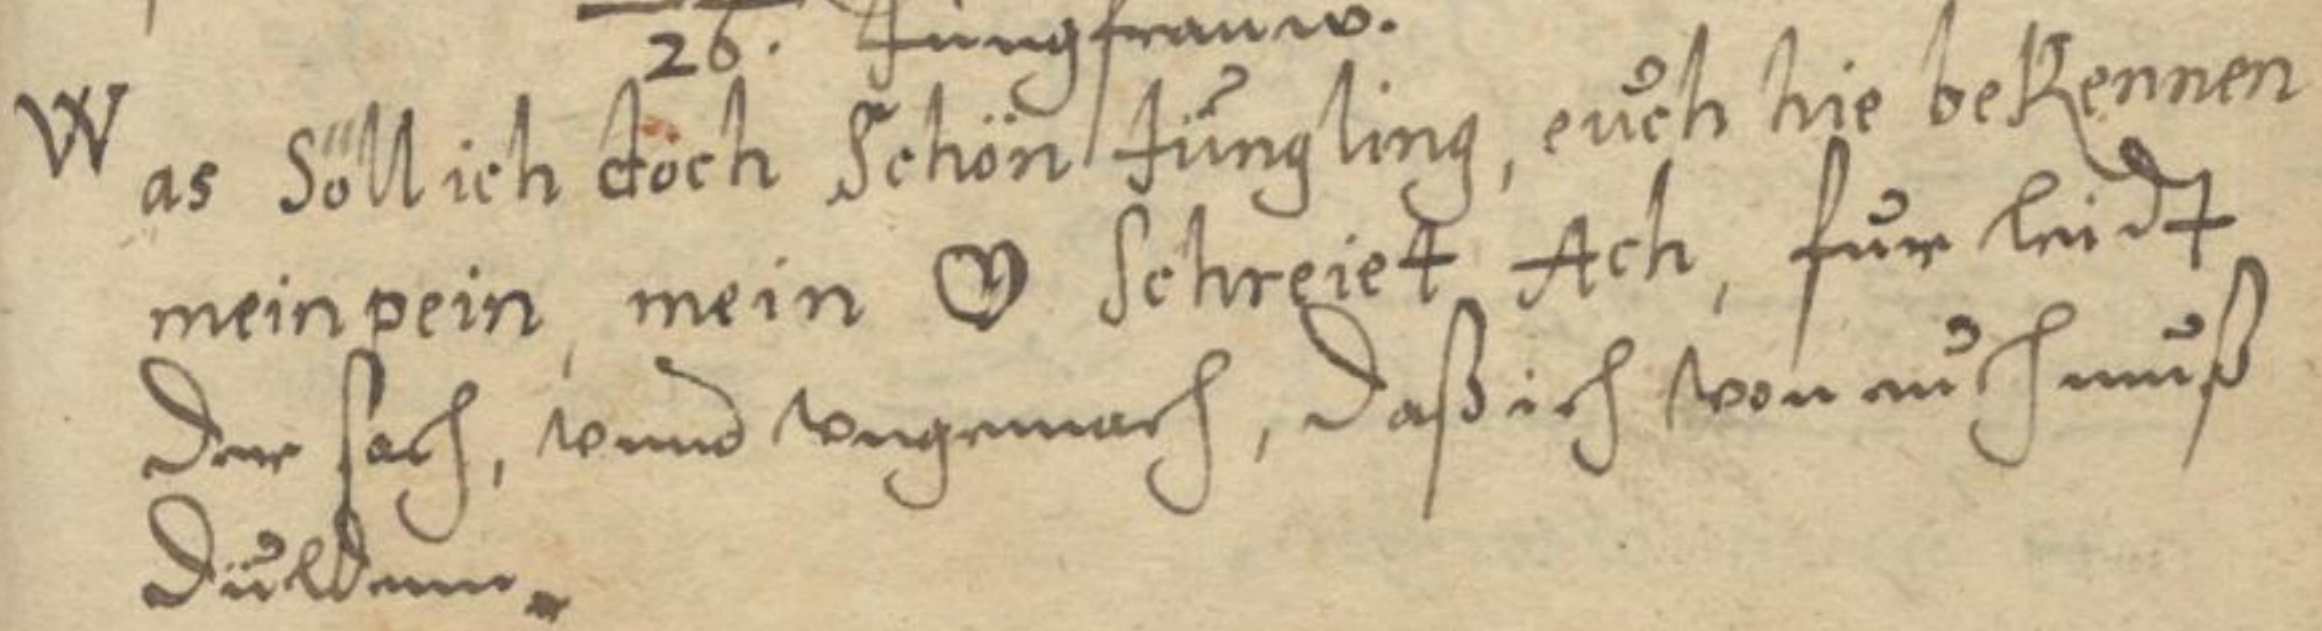 26. Jungfrauw.
Was Söll ich döch Schön Jůngling, eůch hie beKennen
mein pein, mein ♡ schreiet Ach, fůr leidt
der sach, vnnd vngemach, daß ich von eůch můß
důldenn.